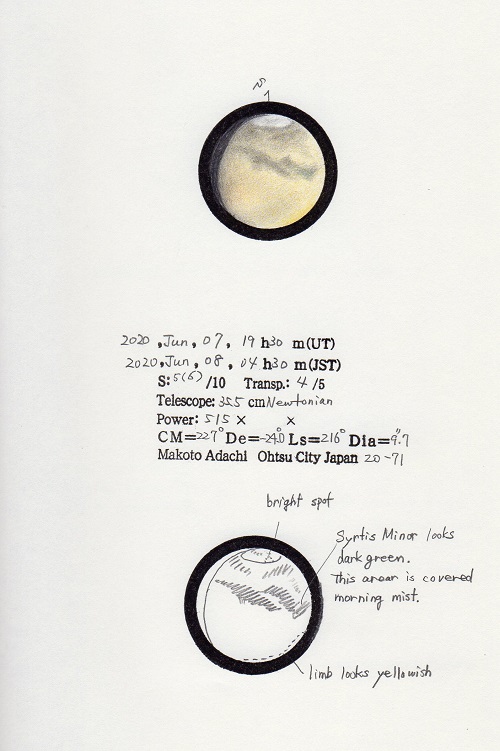 S
2020 ,Jun, 07, 19 h30 m(UT)
2020,Jun, 08, 04 h30 m(JST)
S:5(6) /10 Transp.: 4 /5
Telescope: 35.5 cm Newtonian
Power: 515 × ×
CM=227° De=-24.0 Ls=216° Dia=9."7
Makoto Adachi Ohtsu City Japan 20-71
bright spot
Syrtis Minor looks
dark green.
This arear is covered
morning mist.
limb looks yellowish